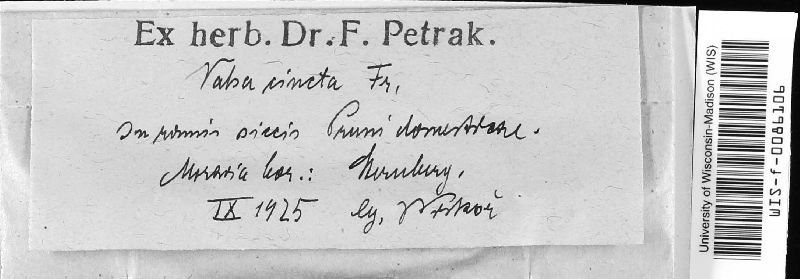 Ex herb. Dr. F. Petrak.
Valsa cincta Fr.
In ramis siccis Pruni domesticae.
Moravia bor.: Sternberg.
IX 1925 lg.
University of Wisconsin-Madison (WIS)
WIS-f-0086106